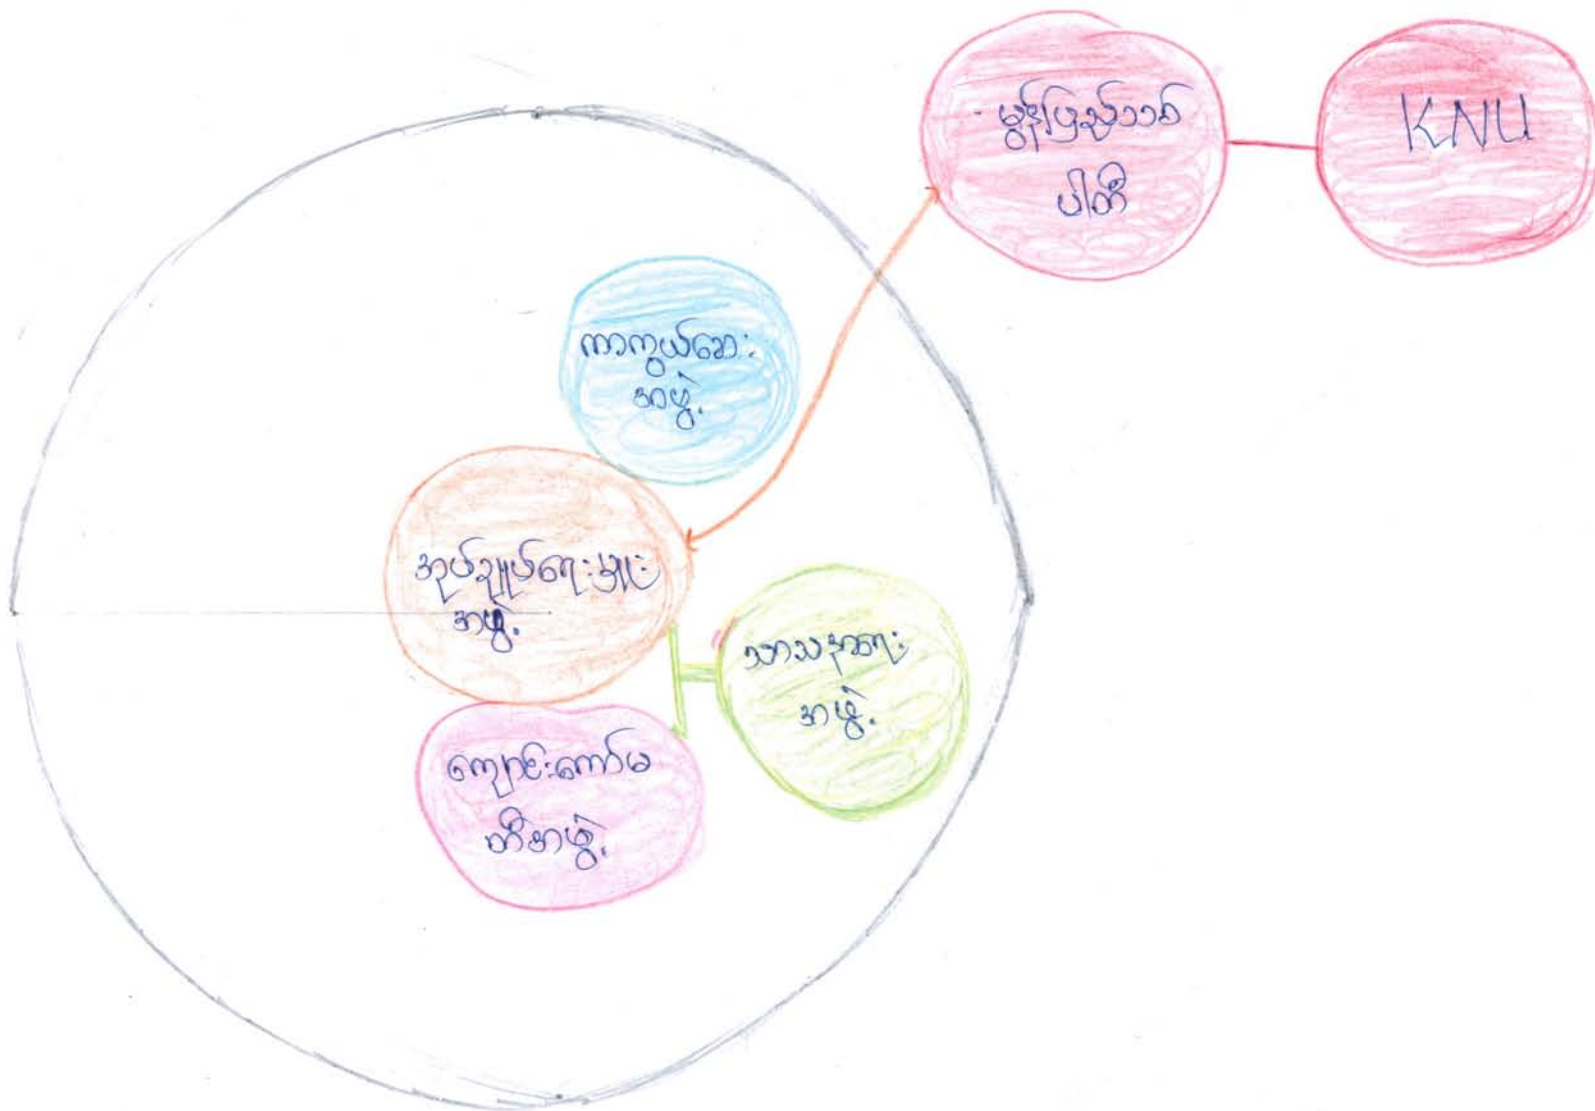 မွန်ပြည်သစ်
ပါတီ
KNU
ကာကွယ်ဆေး
အဖွဲ့
အုပ်ချုပ်ရေးမှူး
အဖွဲ့
သာသနာရေး
အဖွဲ့
ကျောင်းကော်မ
တီအဖွဲ့